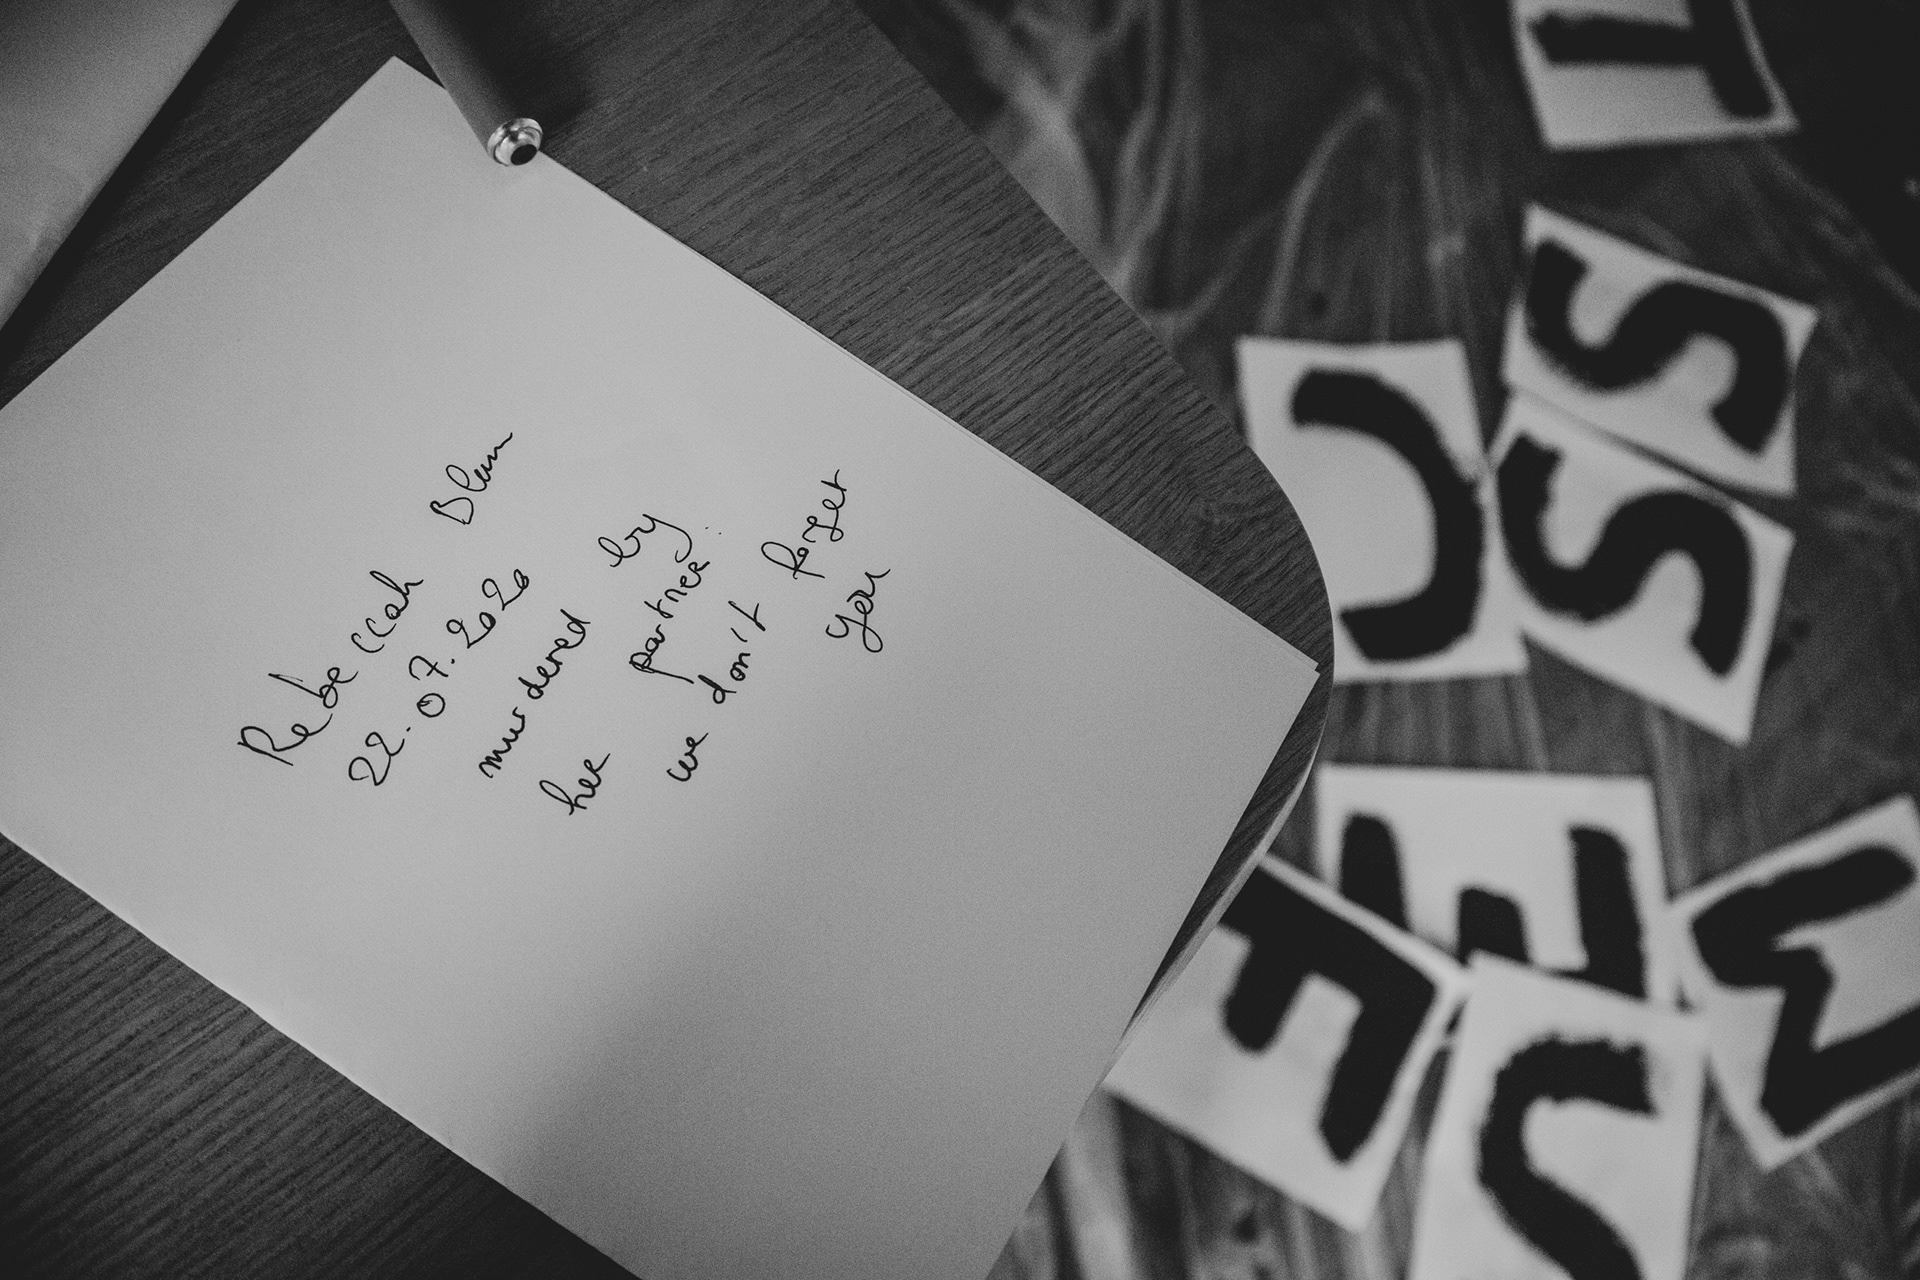 Rebeccah Blum
22.07.2020
murdered by
her partner.
we don't forget
you
S
S
C
S